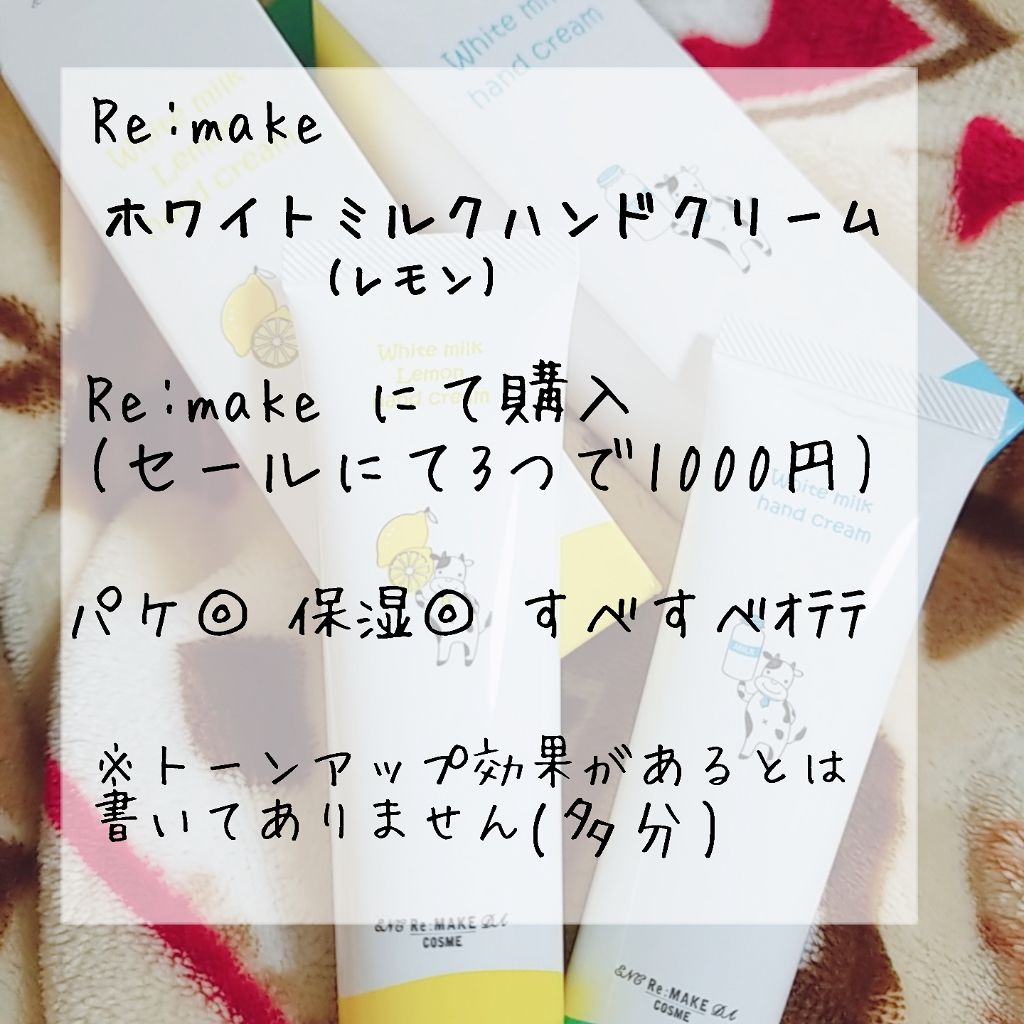 Re:make
ホワイトミルクハンドクリーム
(レモン)
Re:make にて購入
(セールにて3つで1000円)
パケ◎ 保湿◎ すべすべオテテ
※トーンアップ効果があるとは
書いてありません(多分)
White milk
hand cream
White milk
Lemon
hand cream
White milk
Lemon
hand cream
White milk
hand cream
MILK
Re:MAKE
COSME
Re:MAKE
COSME